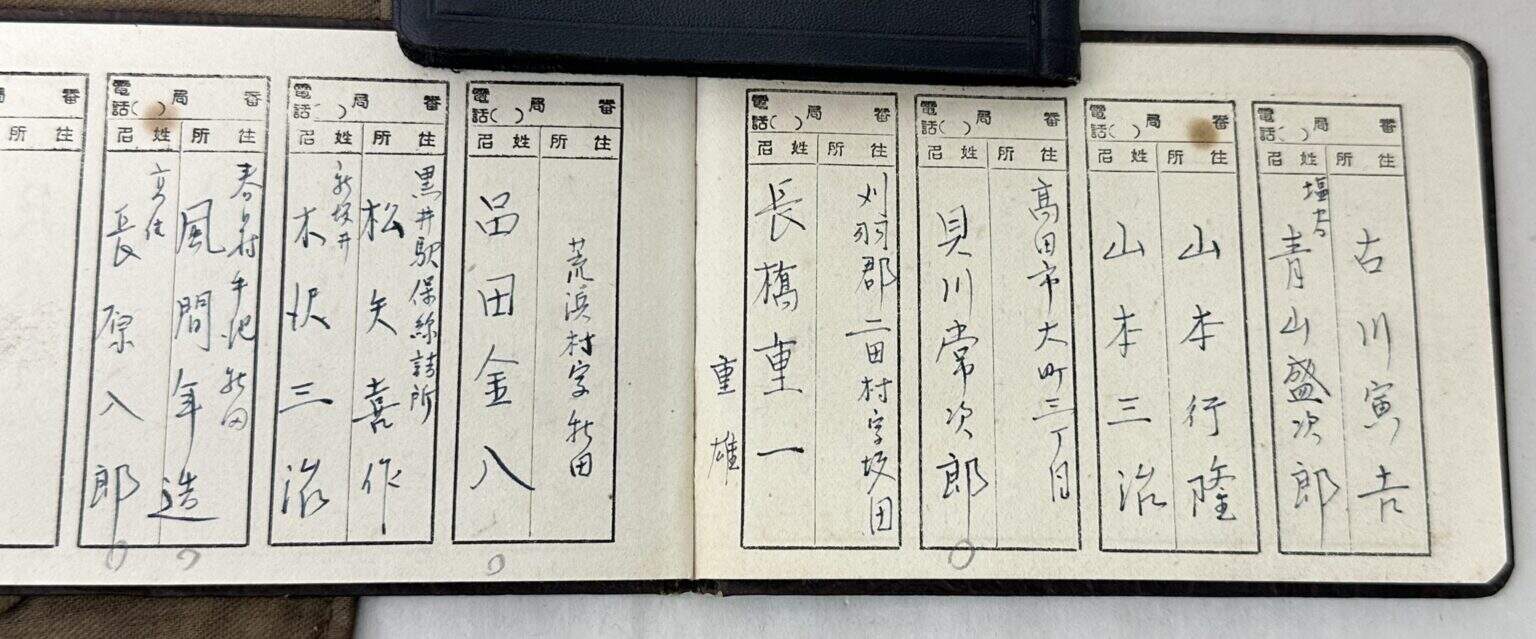 電話( )局 番
住所
姓名
古川寅吉
青山盛次郎
電話( )局 番
住所
姓名
山本行隆
山本三治
電話( )局 番
住所
姓名
高田市大町三丁目
貝川常次郎
電話( )局 番
住所
姓名
刈羽郡二田村字坂田
長橋重一
重雄
電話( )局 番
住所
姓名
荒浜村字新田
品田金八
電話( )局 番
住所
姓名
黒井駅保線詰所
松矢喜作
新坂井
木沢三治
電話( )局 番
住所
姓名
春日村
新田
風間年造
高住
長原八郎
局 番
住所